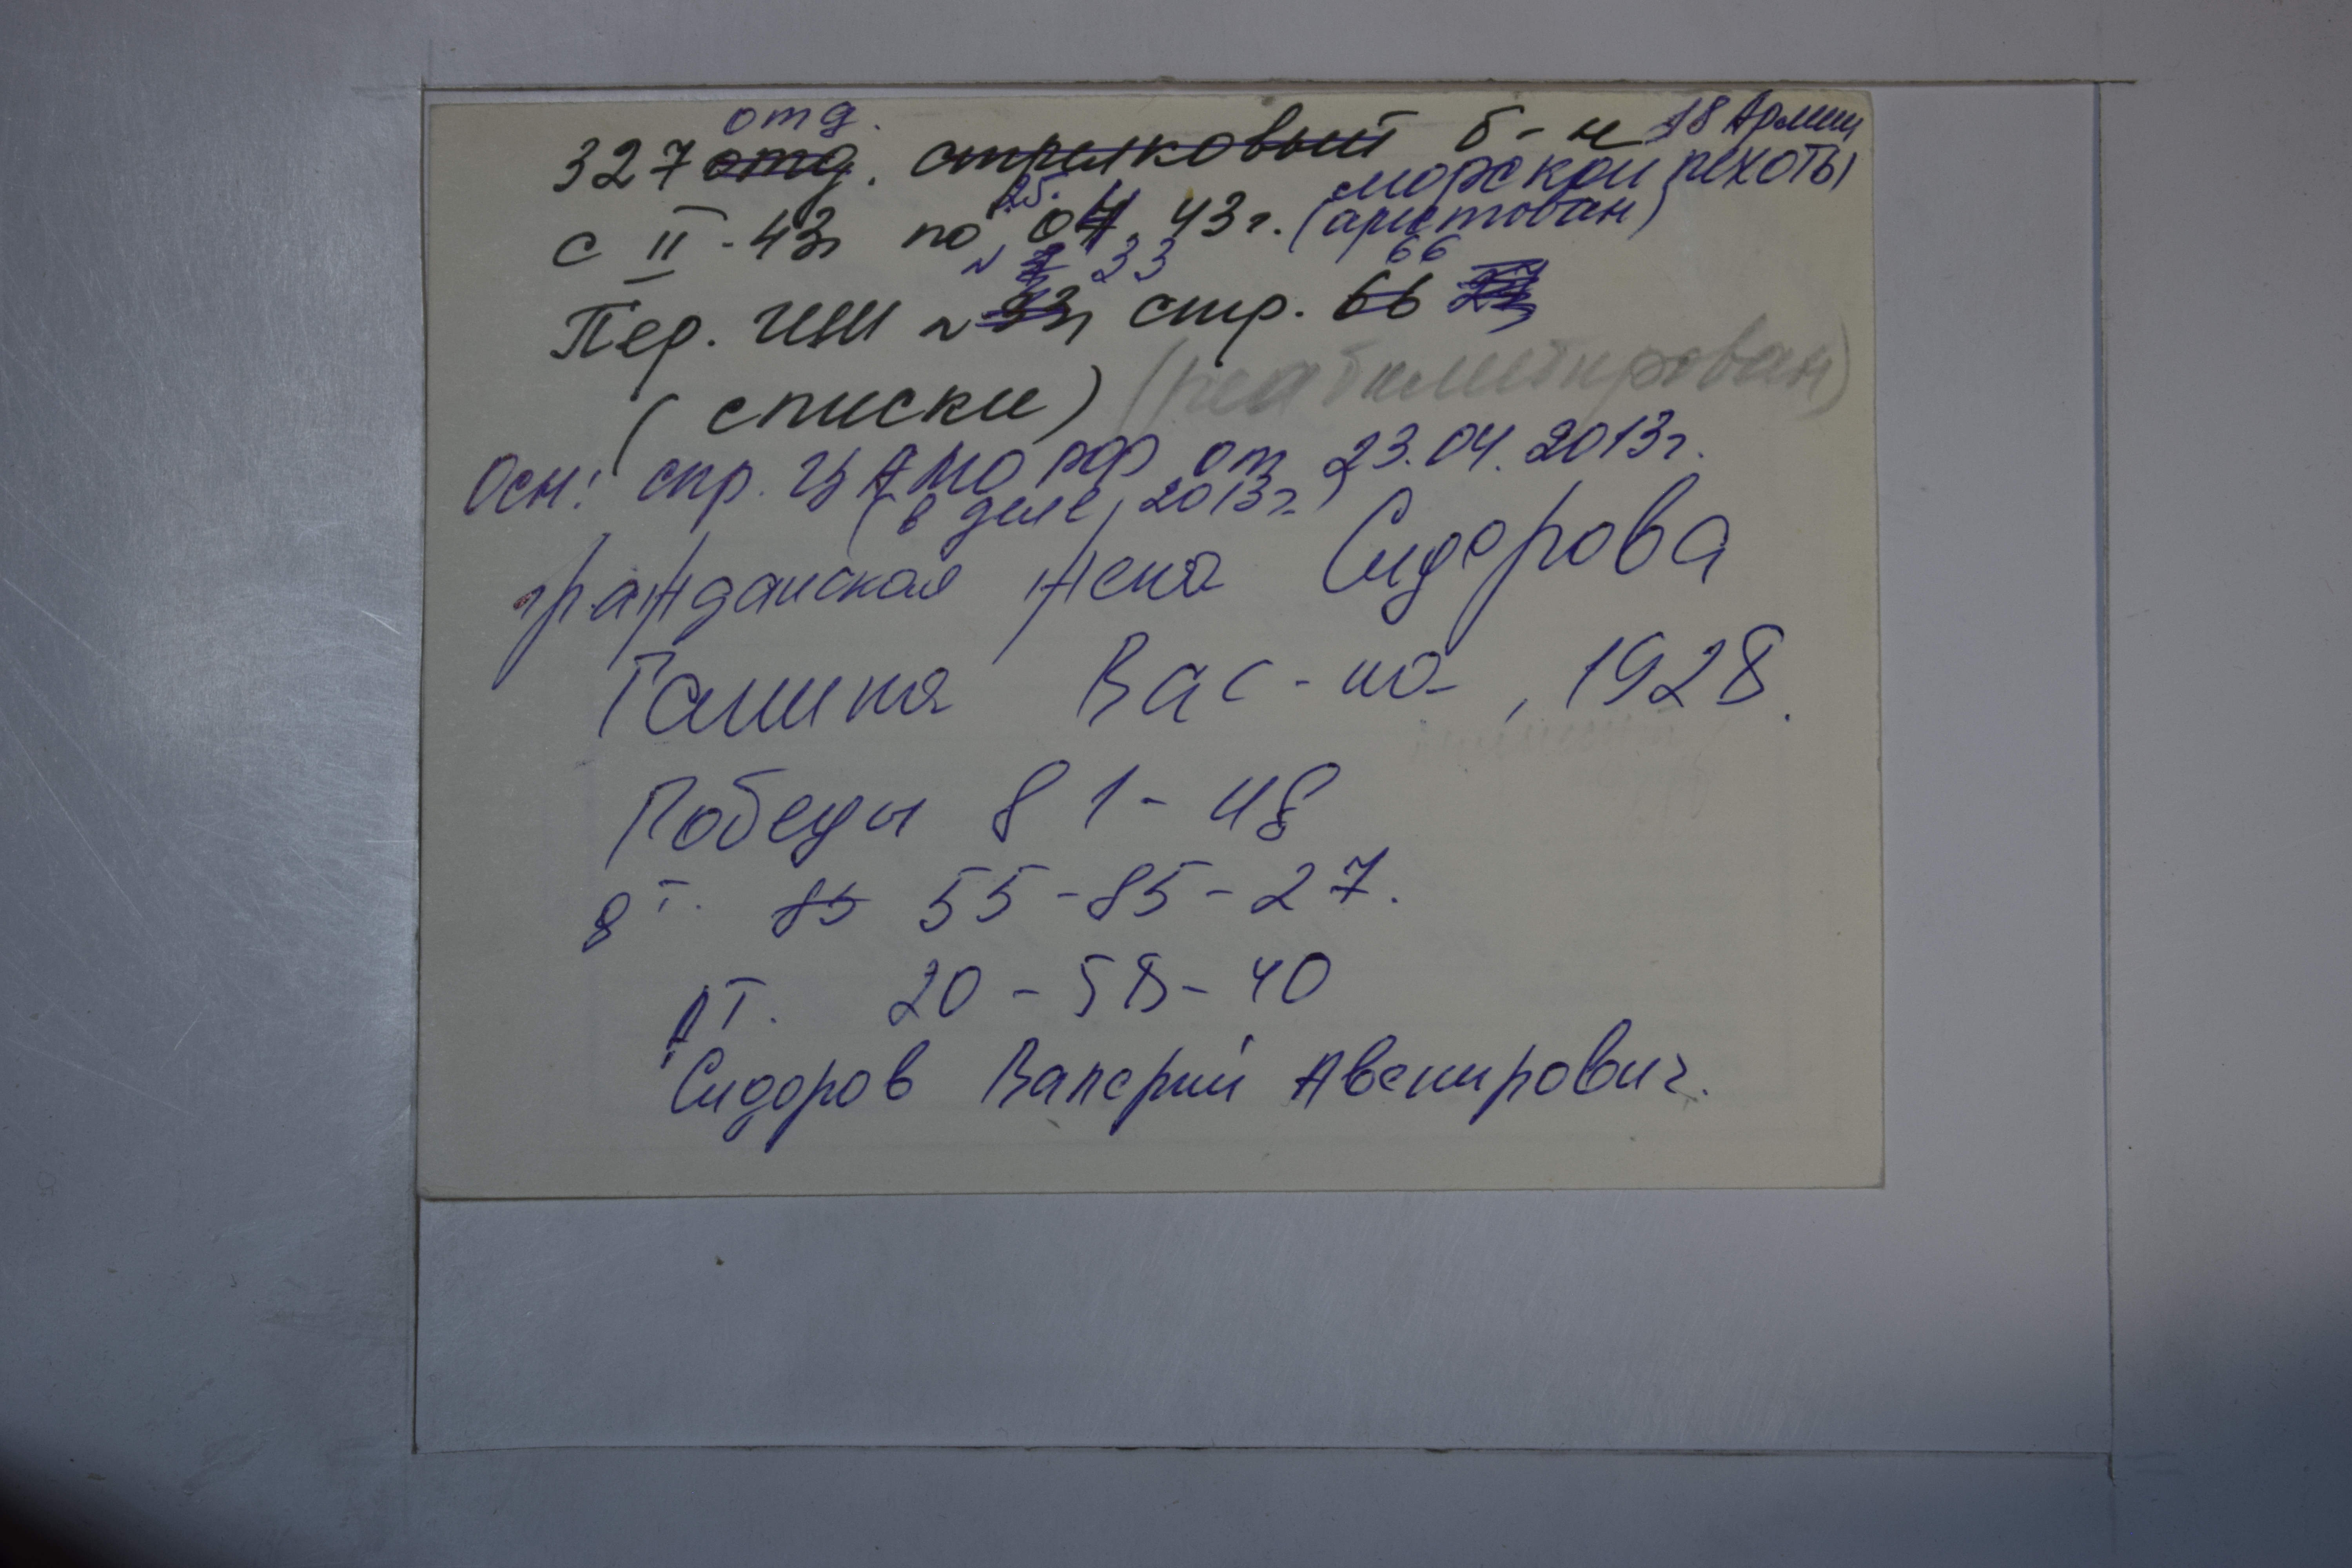 отд.
327 отд. стрелковый б-н 18 Армии
морской пехоты
с II - 43г по 25. 04. 43г. (арестован)
№ 33 66
Пер. ГШ № 33, стр. 66
(списки) (реабилитирован)
Осн: спр. ЦАМО РФ от 23.04.2013г.
(в деле, 2013г.)
гражданская жена Сидорова
Галина Вас-на, 1928.
Победы 81-48
д т. 85 55-85-27.
р т. 20-58-40
Сидоров Валерий Авенирович.